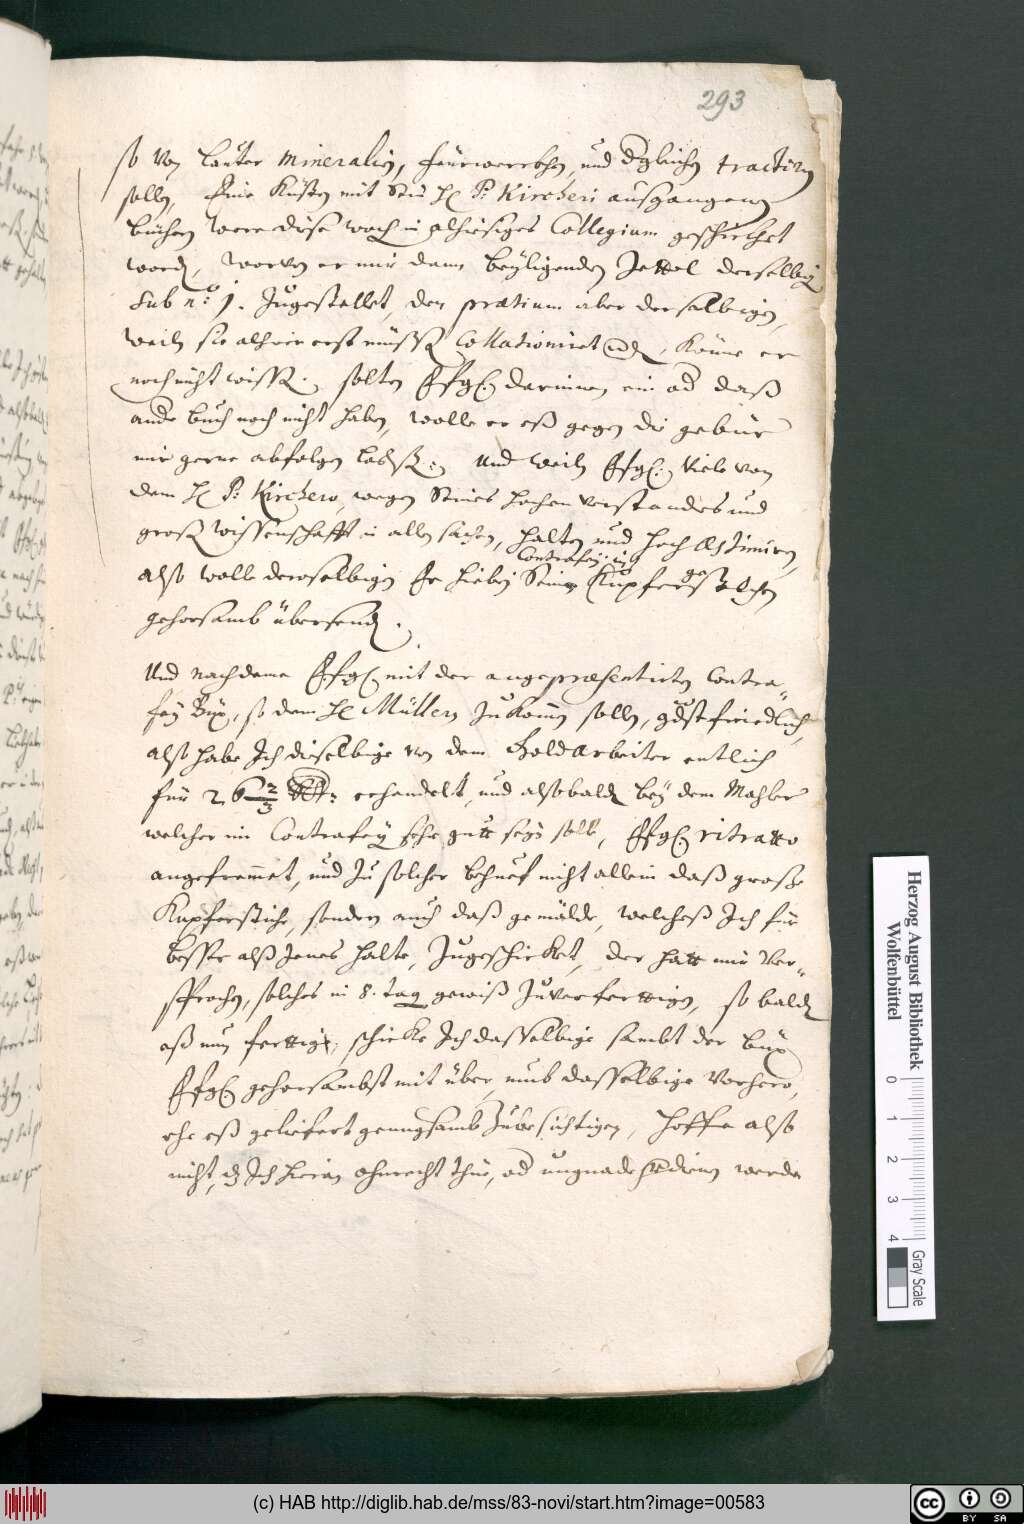 293
so von lautter mineralien, feürwerckhen, und dergleichen tractiren
sollen, Eine Küsten mit deß H. P. Kircheri außgangenen
büchern were diese woch in alhiesiges Collegium geschicket
worden, worvon er mir dann beyligenden Zettel derselbigen
sub n:o 1. Zugestellet, den prætium aber derselbigen,
weiln sie alhier erst müssen Collationiret werden, könne er
noch nicht wissen. solten EfgC. darinnen ein od daß
ander buch noch nicht haben, wolle er eß gegen die gebür
mir gerne abfolgen lassen: Und weiln EfgC. viele von
dem H. P. Kirchero, wegen Seines hochen verstandes und
großen wissenschafft in allen sachen, halten und hoch æstimiren,
Contrafey in
also wolle derselbigen Er hiebey Sein Kupfergestochen
gehorsamb übersenden.
Und nachdeme EfgC. mit der angepræsentirten Contra-
fey Büx, so dem H. Müllern Zukomen sollen, gdst friedlich,
alß habe Ich dieselbige von dem Goldarbeiter entlich
für 26 2/3 erhandelt, und alsobalden bey dem Mahler
welcher im Contrafey sehr gutt seyn solle, EfgC. ritratto
angefremmet, und Zu solcher behuef nicht allein daß große
Kupferstich, sondern auch daß gemälde, welcheß Ich für
besser alß Jenes halte, Zugeschicket, der hatt mir Ver-
sprochen, solches in 8. tag gewiß Zuverfertigen, so balden
eß nun fertig, schicke Ich dasselbige sambt der Büx
EfgC. gehorsambst mit über, umb dasselbige vorhero,
ehe eß geliefert genugsamb Zubesichtigen, hoffe also
nicht, dz Ich hieran ohnrecht thue, od ungnade verdienen werde
Herzog August Bibliothek
Wolfenbüttel
0 1 2 3 4
Gray Scale
(c) HAB http://diglib.hab.de/mss/83-novi/start.htm?image=00583
CC BY SA